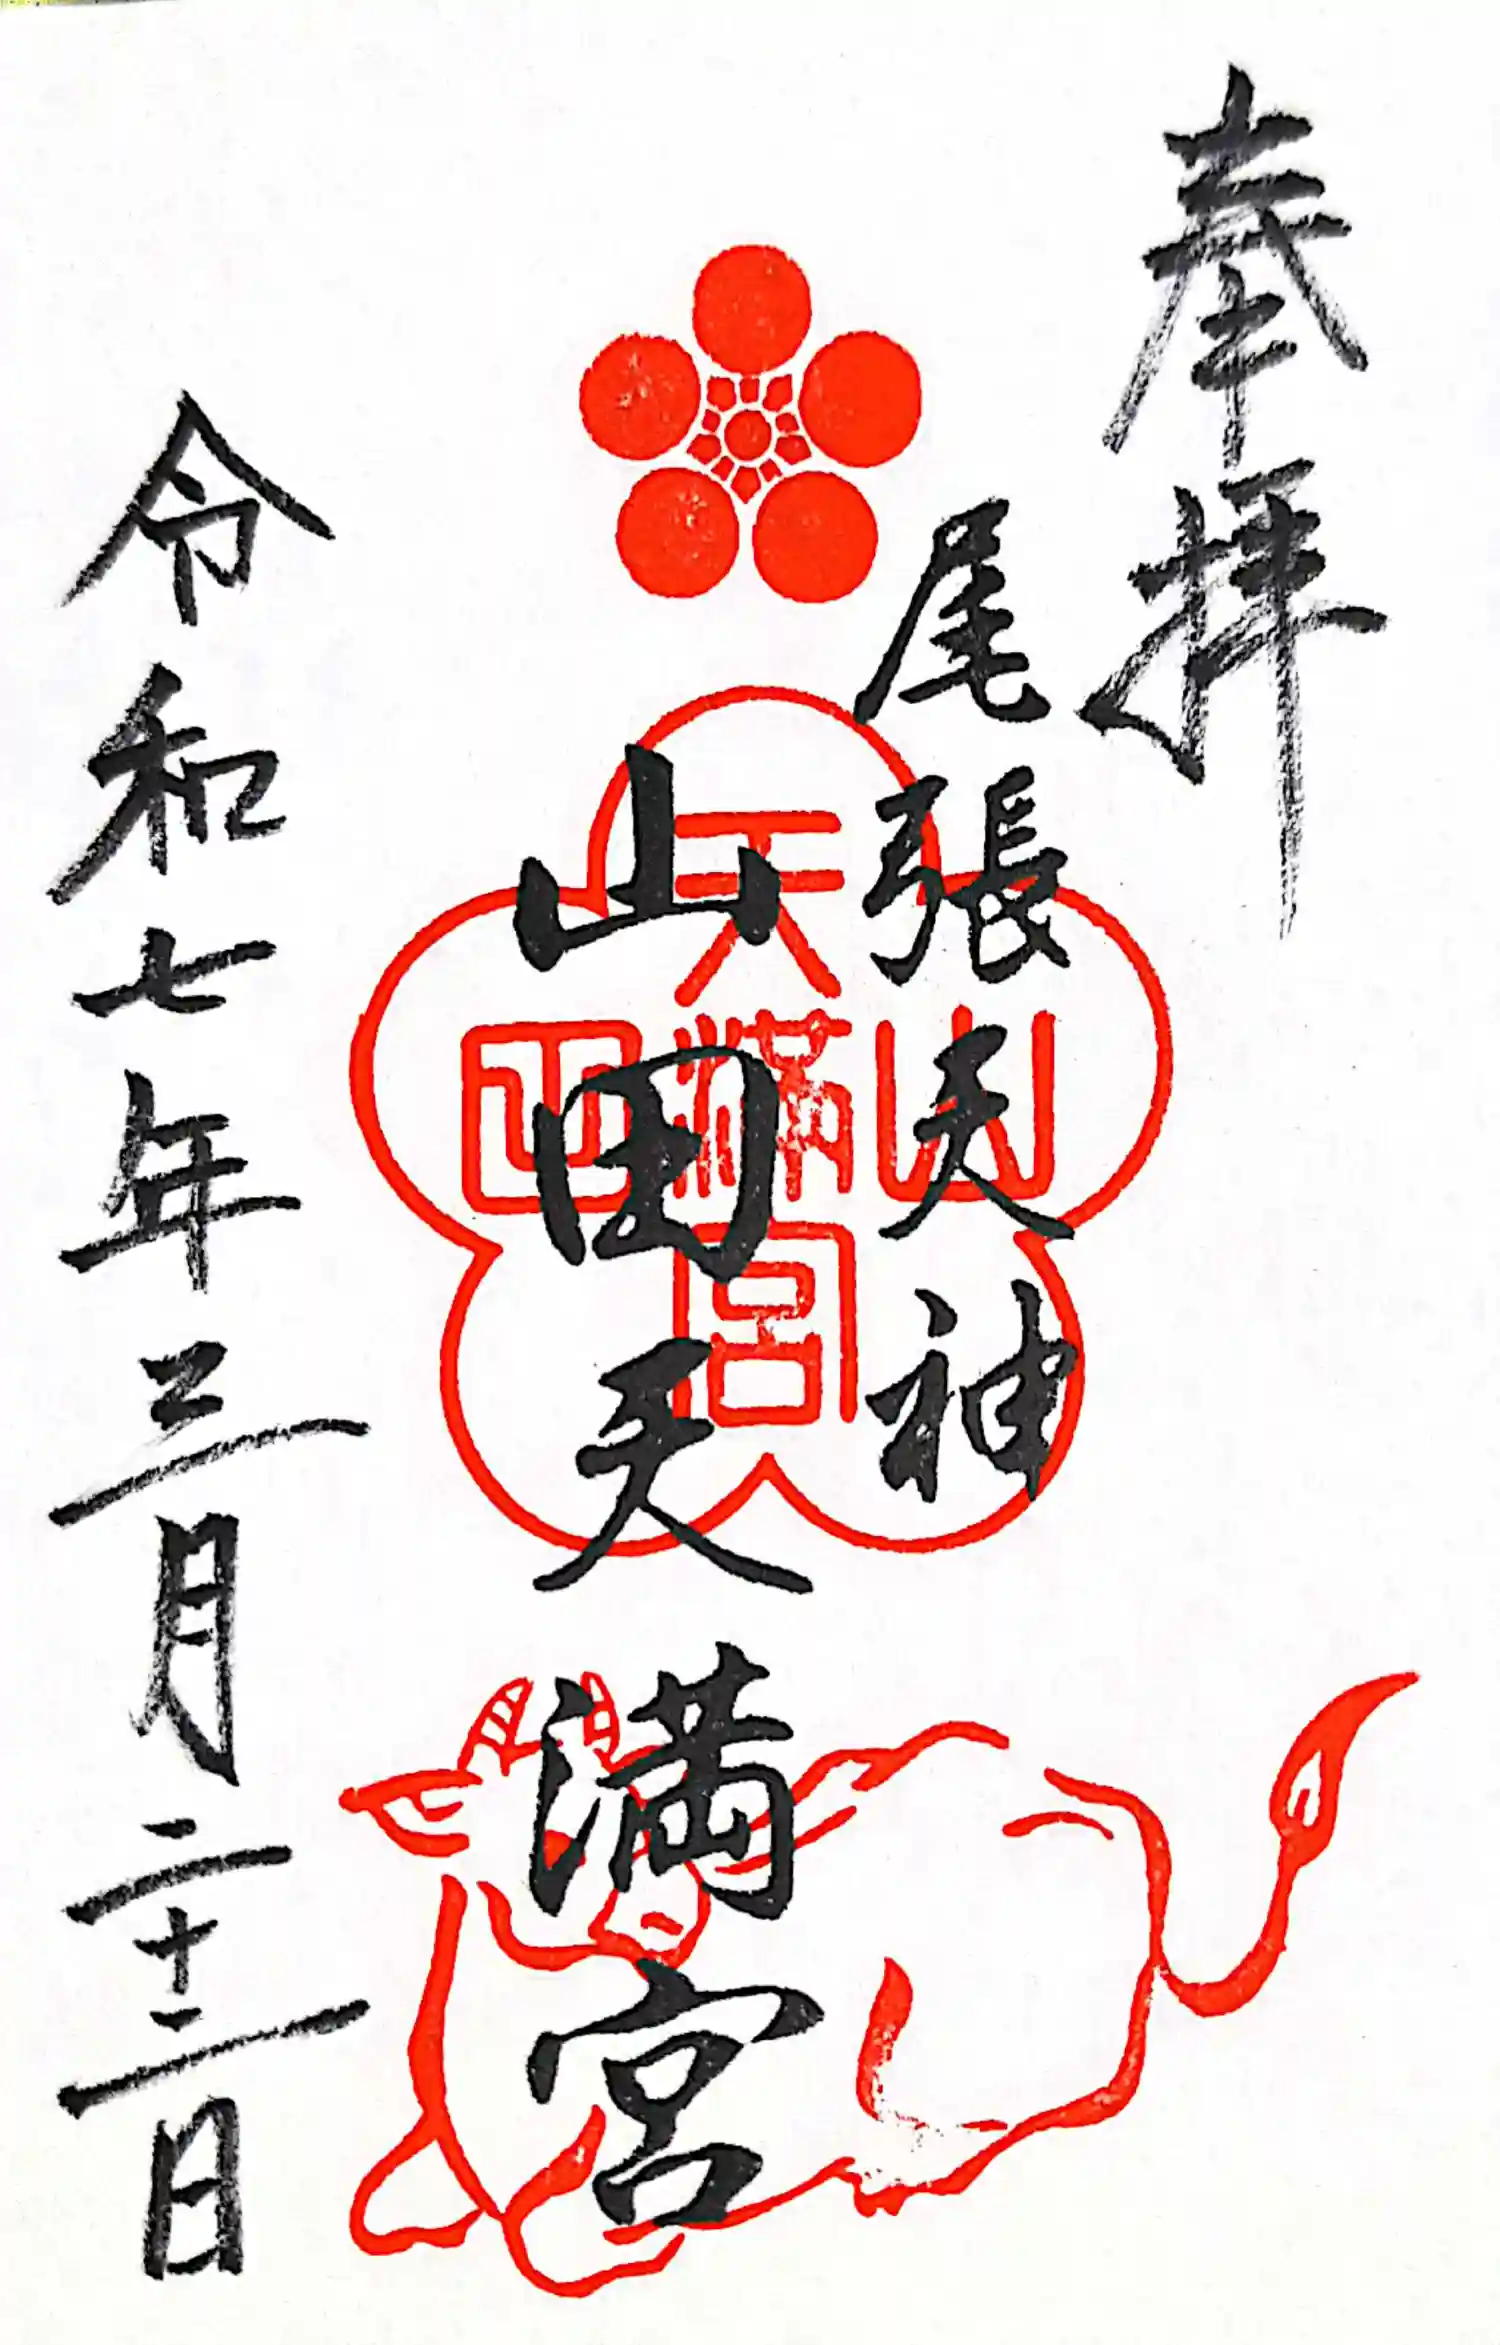 奉拝
尾張天神
山田天満宮
山田天満宮
令和七年三月二十二日